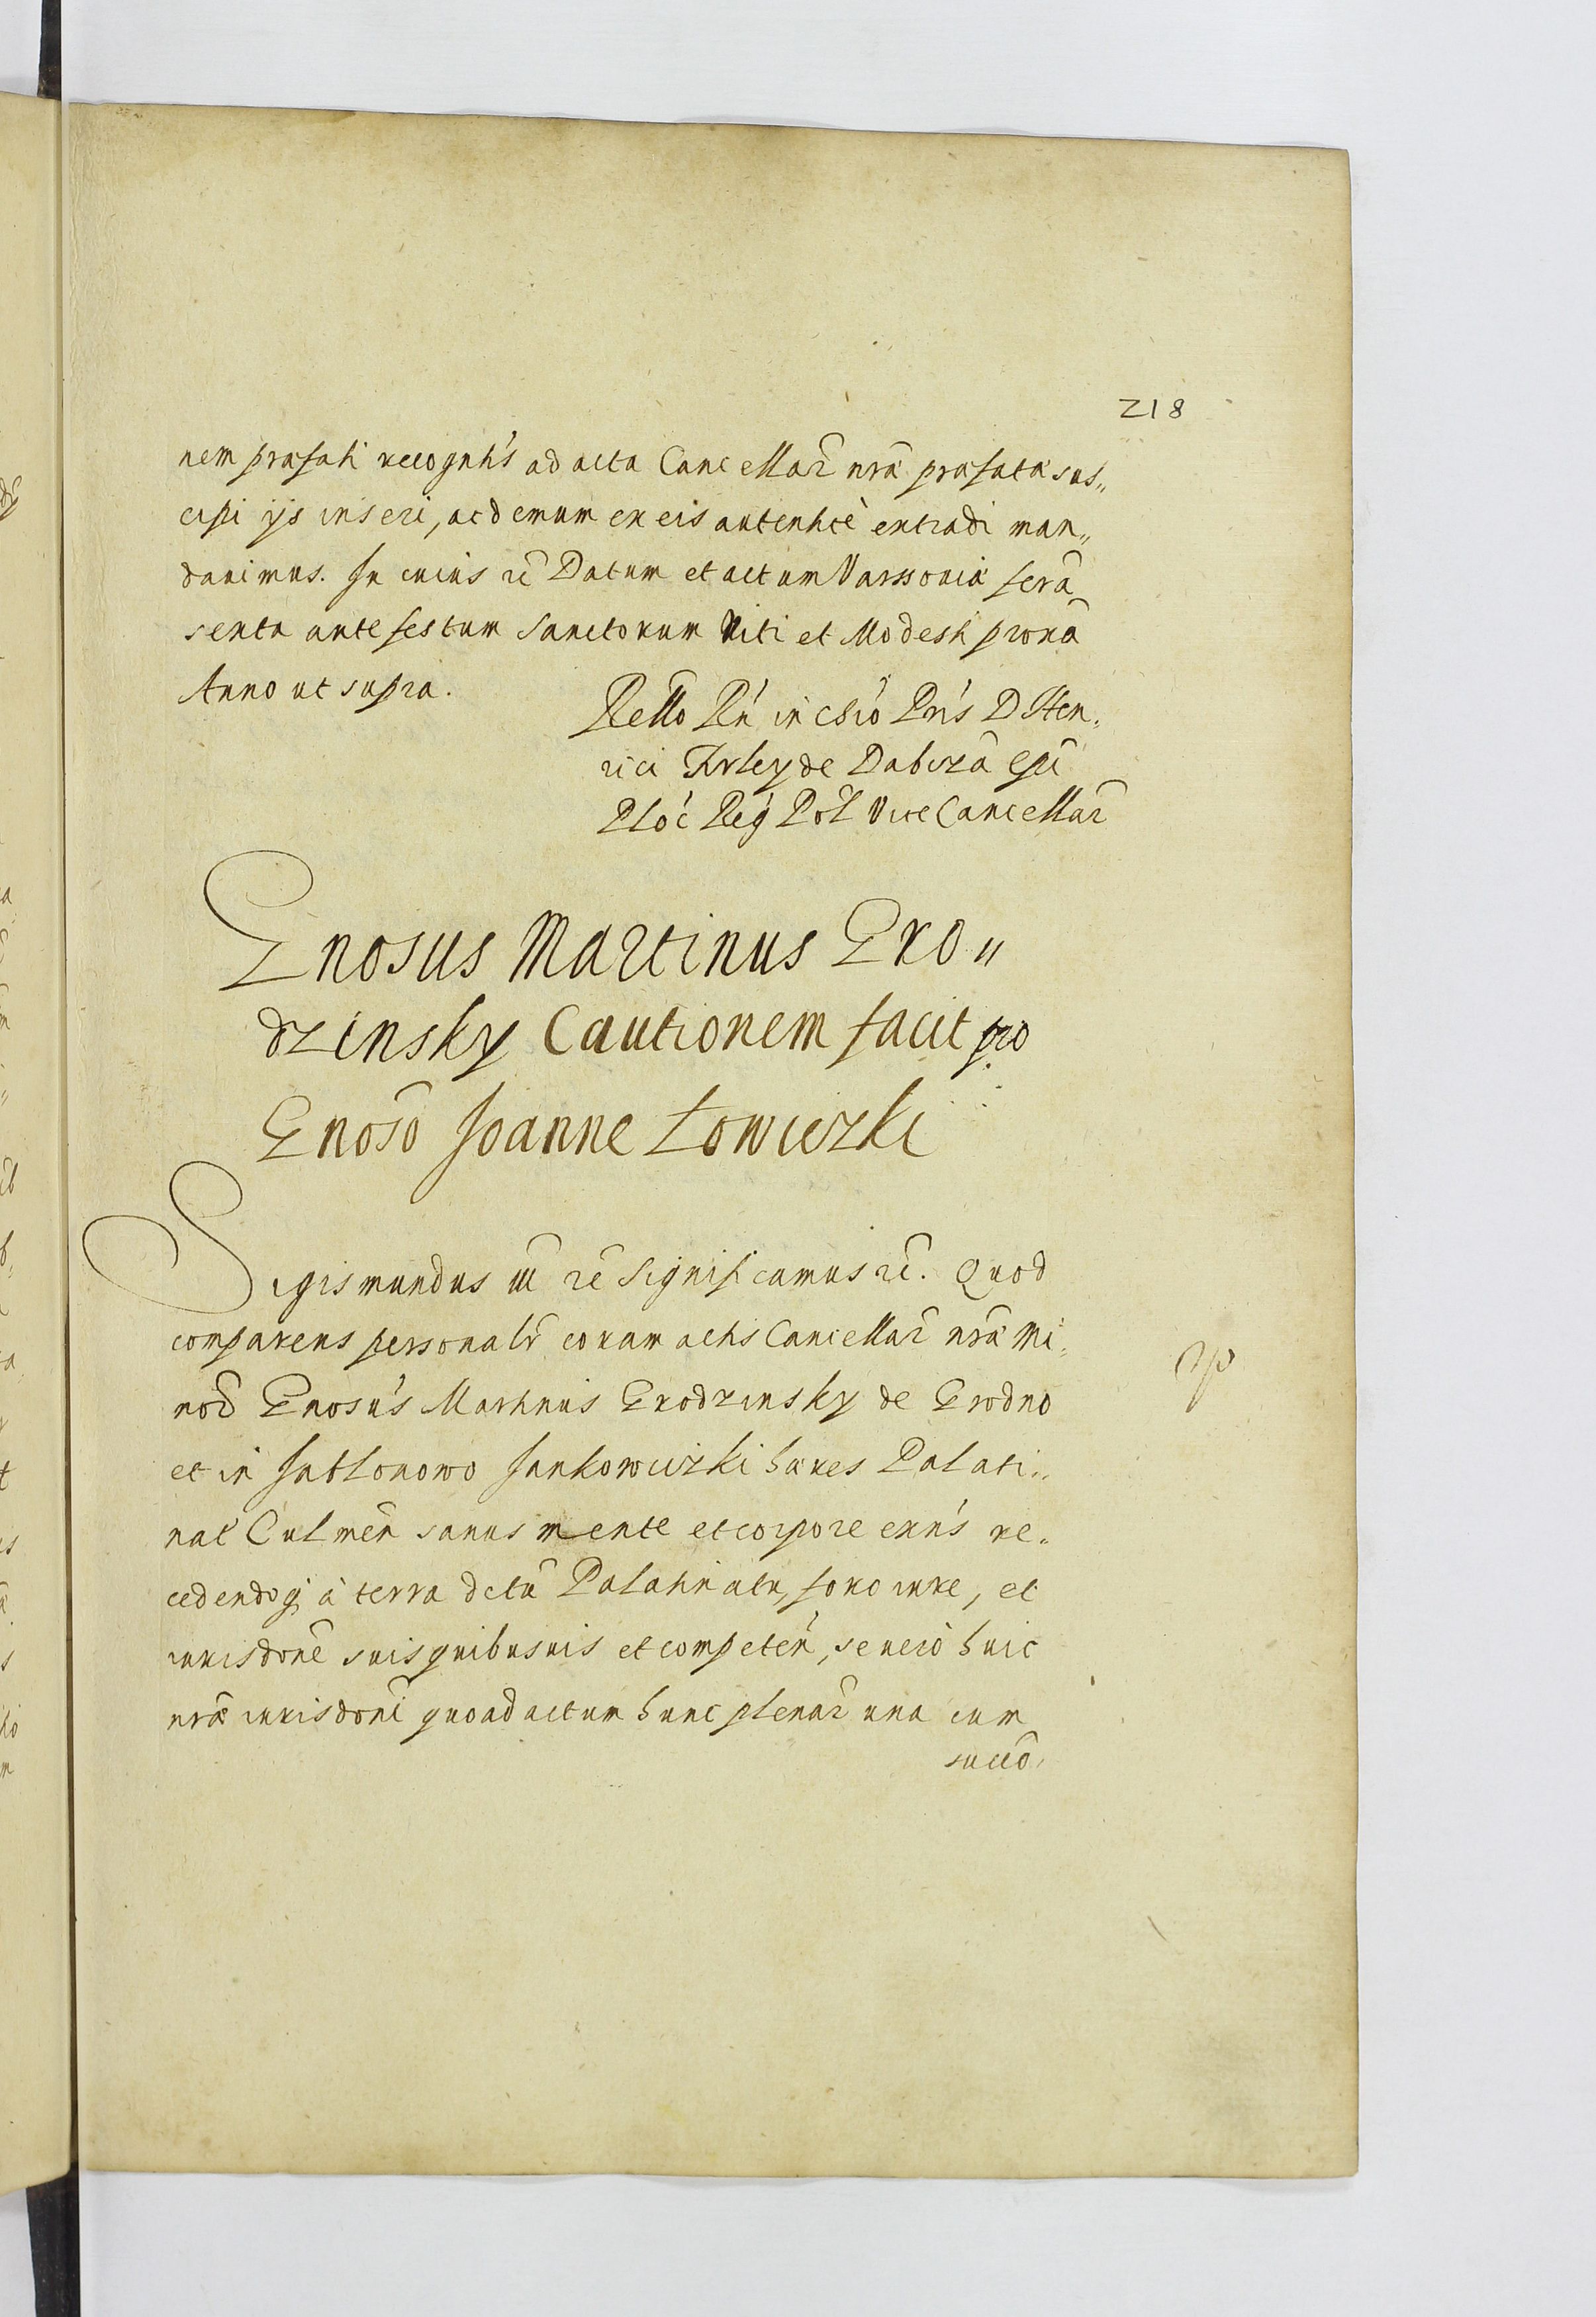 218
nem præfati recogntis ad acta Cancellar nrã præfata sus„
cipi ijs inseri, ac demum ex eis autenticè extradi man„
dauimus. In cuius rẽ Datum et actum Varssouiæ ferã
sexta ante festum Sanctorum Viti et Modesti proxã
Anno ut supra.
Rello Rń in Chrō Pris D Hen„
rici Firley de Dabrowica Epi
Ploć Reg Pol ViceCancellar
Gnosus Martinus Gro„
dzinsky Cautionem facit pro
Gnoso Joanne Łowiczki
Sigismundus III rẽ Significamus rẽ. Quod
comparens personalr coram actis Cancellar nræ Mi„
nor Gnosus Martinus Grodzinsky de Grodno
et in Jabłonowo Jankowiczki hæres Palati„
nat Culmeñ sanus mente et corpore exñs re„
cedendoq à terra dctũ Palatinatu, foro iure, et
iurisdone suis quibusuis et competeñ, se uerò huic
nræ iurisdoni quoad actum hunc plenar una cum
succõ„